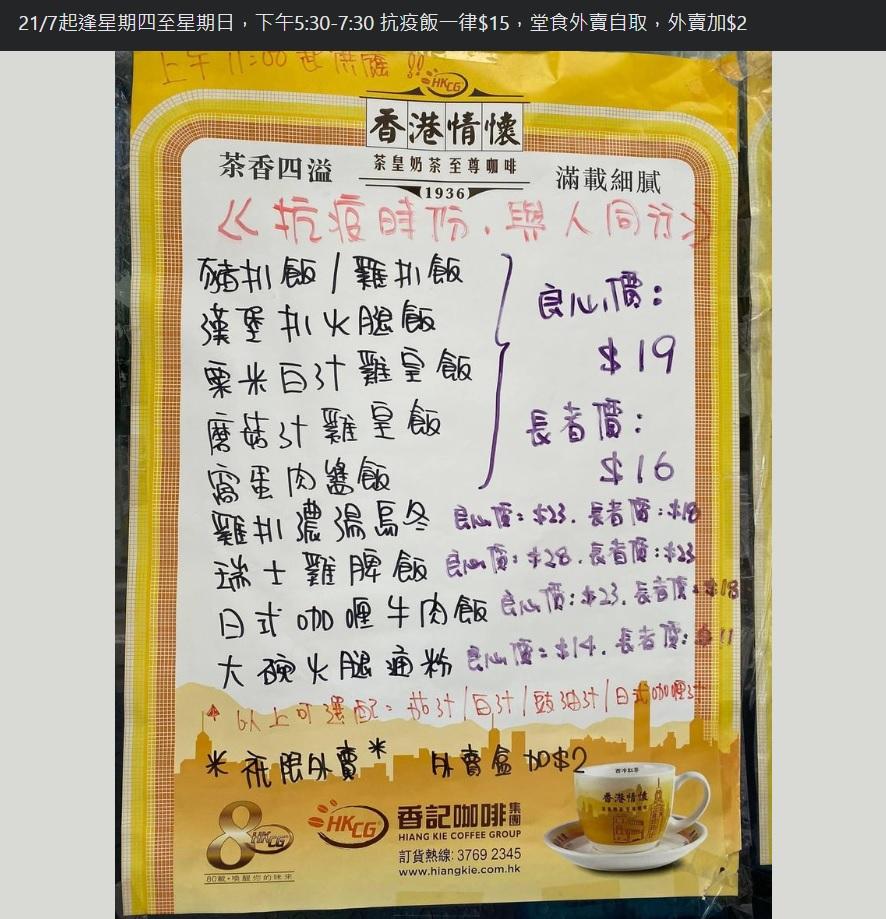 21/7起逢星期四至星期日，下午5:30-7:30 抗疫飯一律$15，堂食外賣自取，外賣加$2
上午 11:00 起供應 !!
HKCG
香港情懷
茶香四溢
茶皇奶茶至尊咖啡
滿載細膩
1936
《抗疫時份．與人同行》
豬扒飯/雞扒飯
漢堡扒火腿飯
粟米白汁雞皇飯
蘑菇汁雞皇飯
窩蛋肉醬飯
良心價：
$19
長者價：
$16
雞扒濃湯烏冬 良心價：$23．長者價：$18
瑞士雞脾飯 良心價：$28．長者價：$23
日式咖喱牛肉飯 良心價：$23．長者價：$18
大碗火腿通粉 良心價：$14．長者價：$11
以上可選配：茄汁/白汁/豉油汁/日式咖喱汁
*祇限外賣* 外賣盒加$2
西冷紅茶
香港情懷
HKCG
80載•喚醒你的味來
HKCG
香記咖啡集團
HIANG KIE COFFEE GROUP
訂貨熱線: 3769 2345
www.hiangkie.com.hk